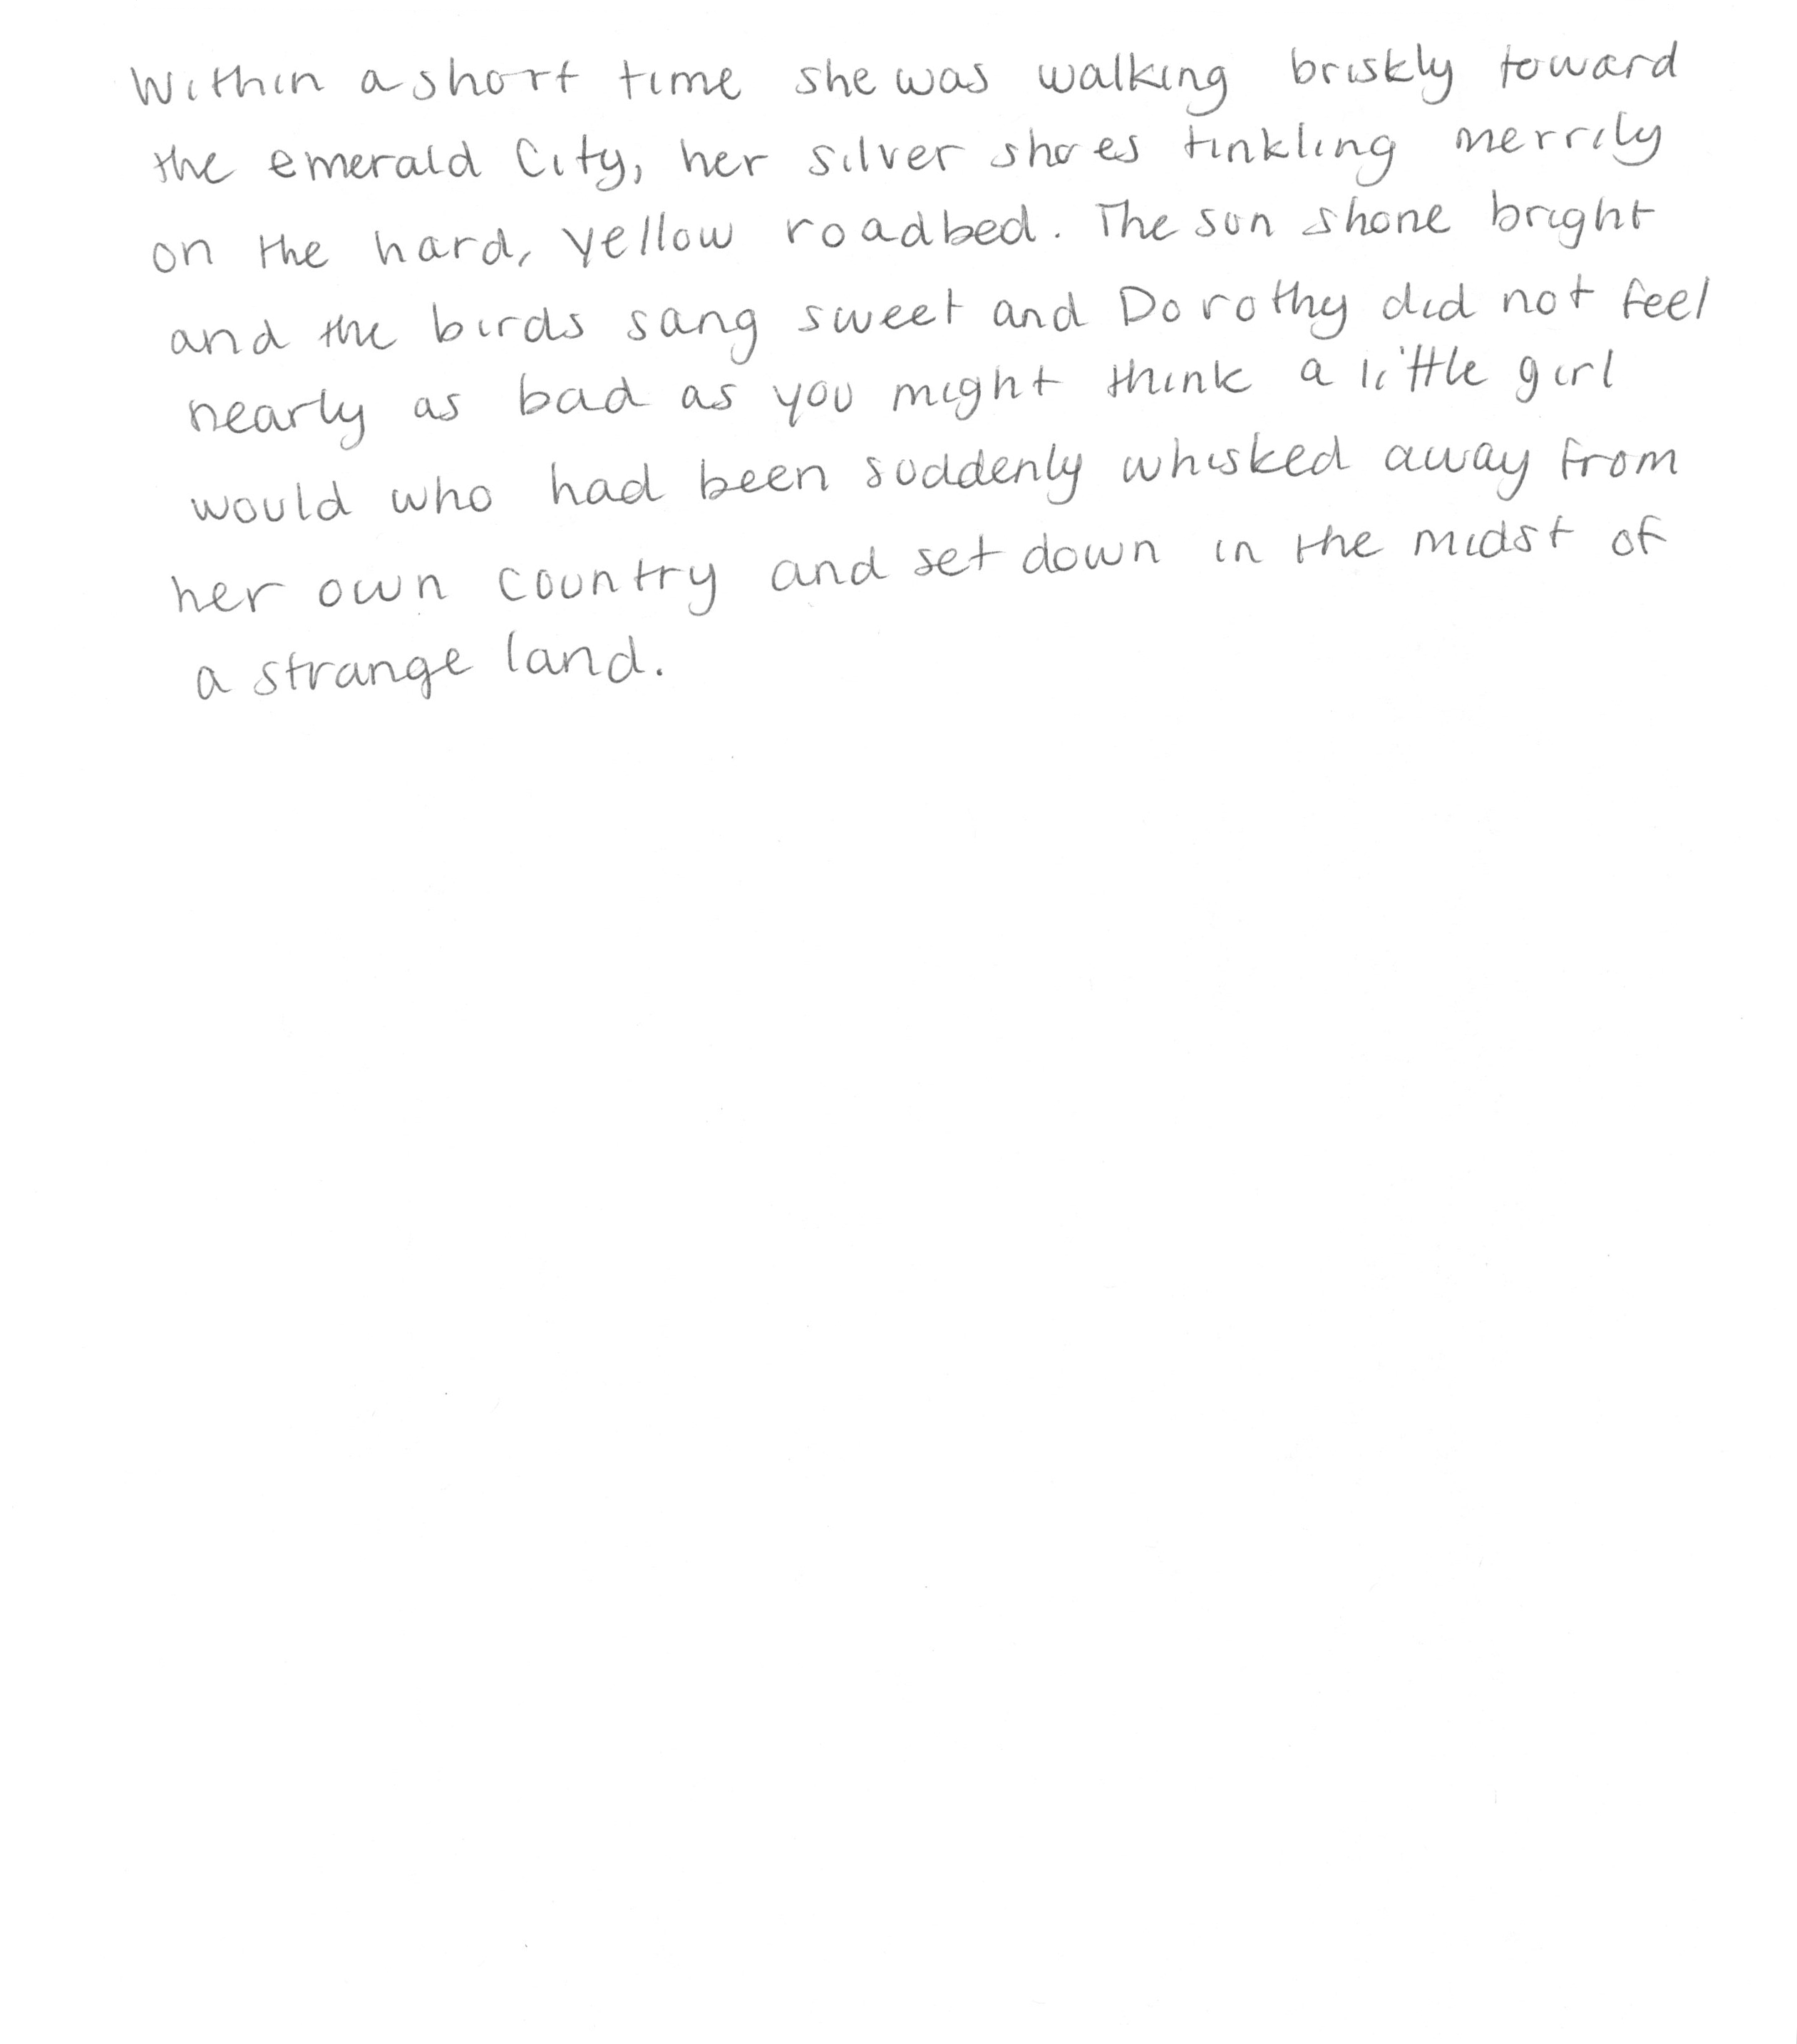 Within a short time she was walking briskly toward
the emerald City, her silver shoes tinkling merrily
on the hard, yellow roadbed. The sun shone bright
and the birds sang sweet and Dorothy did not feel
nearly as bad as you might think a little girl
would who had been suddenly whisked away from
her own country and set down in the midst of
a strange land.